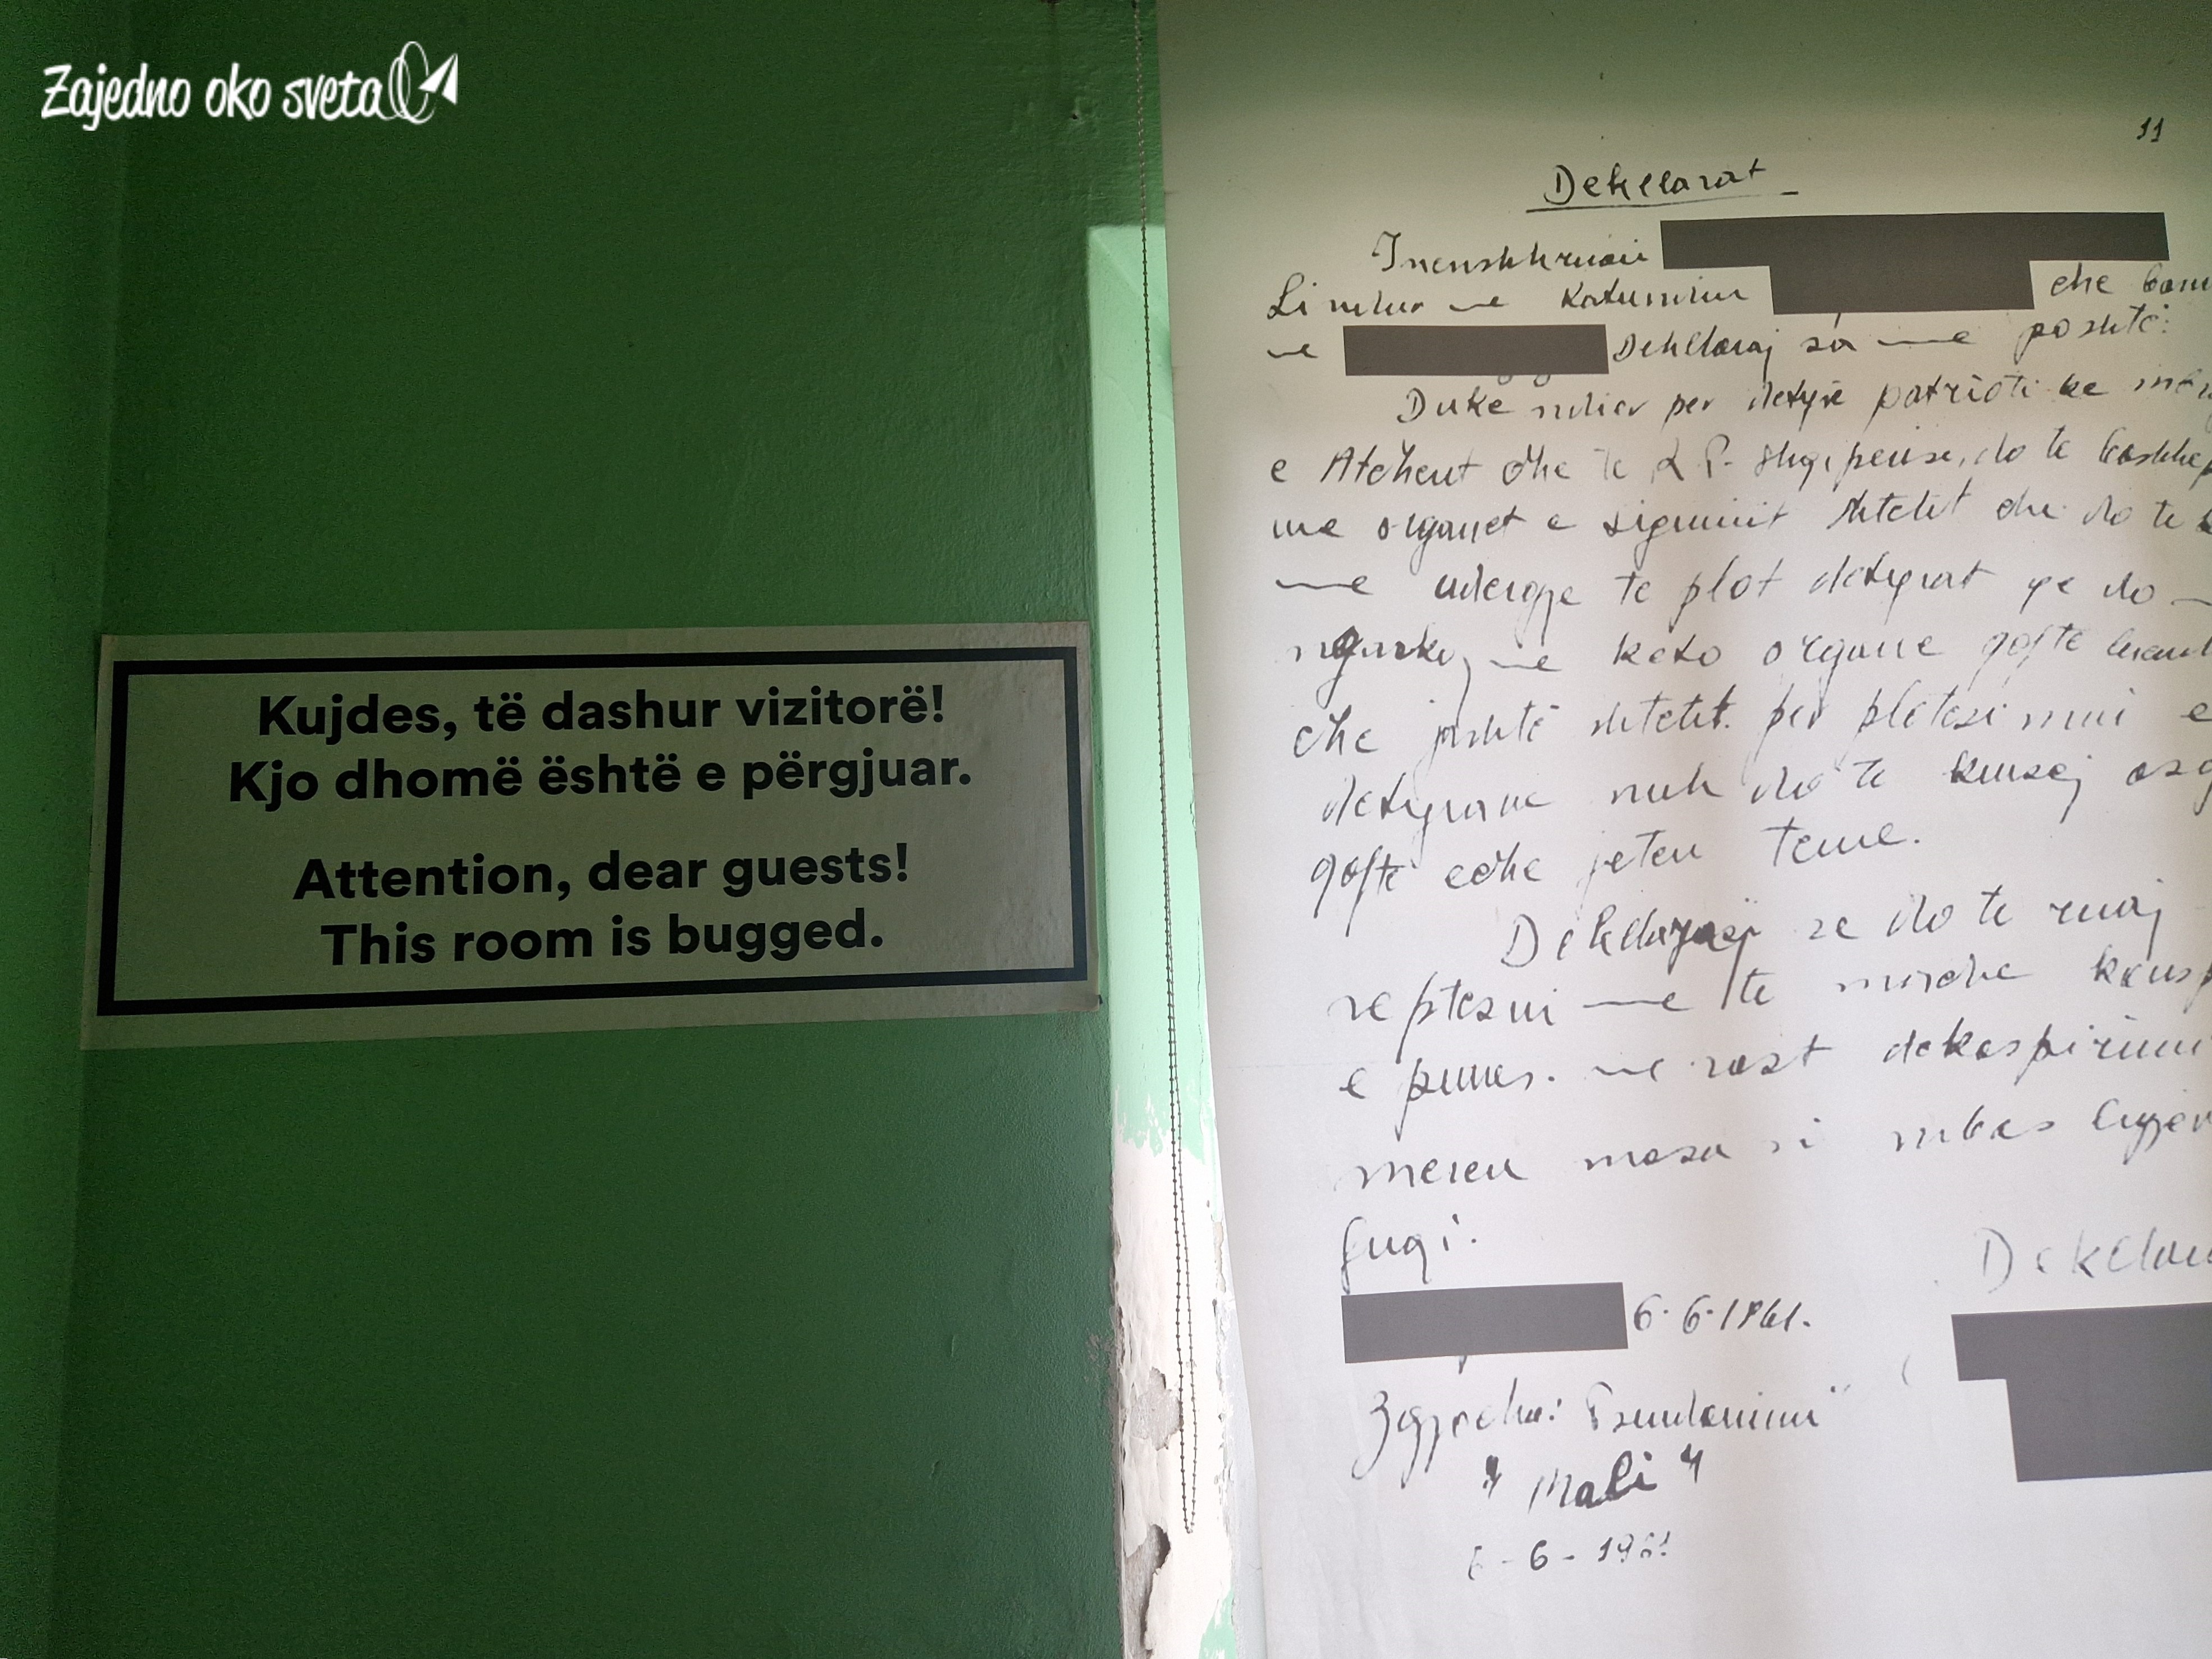 Zajedno oko sveta
Kujdes, të dashur vizitorë!
Kjo dhomë është e përgjuar.
Attention, dear guests!
This room is bugged.
11
Dekllarat
I nenshkruari
Lindur ne Katundin dhe
ne Dekllaroj sa me poshtë:
Duke ndier per detyrë patriotike
e Atdheut dhe te R P. Shqiperise, do te
me organet e sigurimit Shtetit dhe do te
me te plot detyrat qe do
ngarkoj me keto organe qofte
dhe jashtë shtetit. per plotesimin e
detyrave nuk do te kursej
qofte edhe jeten teme.
Dekllaroj se do te ruaj
me te
e punes. ne rast
meren masa si mbas
fuqi.
6·6·1961. Dekllau
Zgjedhur Pseudonimin
"Mali"
6-6-1961